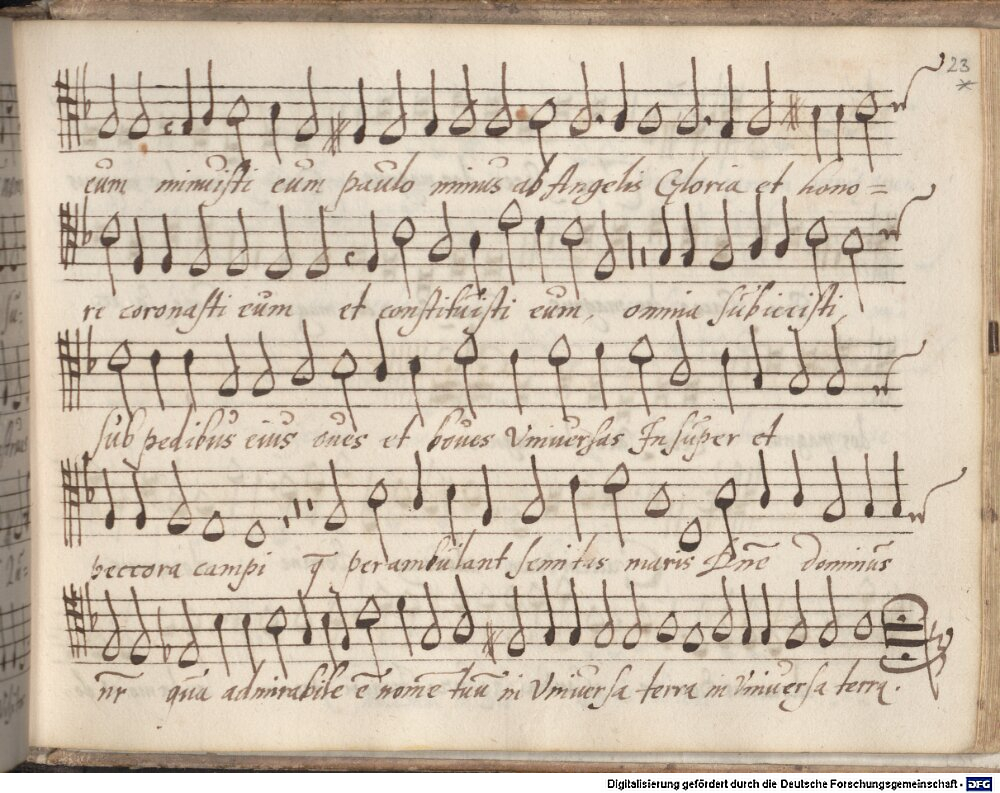 23
eum minuisti eum paulo minus ab Angelis Gloria et hono=
re coronasti eum et constituisti eum, omnia subiecisti,
sub pedibus eius oues et boues Vniuersas Insuper et
peccora campi q̃ perambulant semitas maris Dñe dominus
nr̃ quã admirabile ẽ nomẽ tuũ in Vniuersa terra in Vniuersa terra.
Digitalisierung gefördert durch die Deutsche Forschungsgemeinschaft - DFG